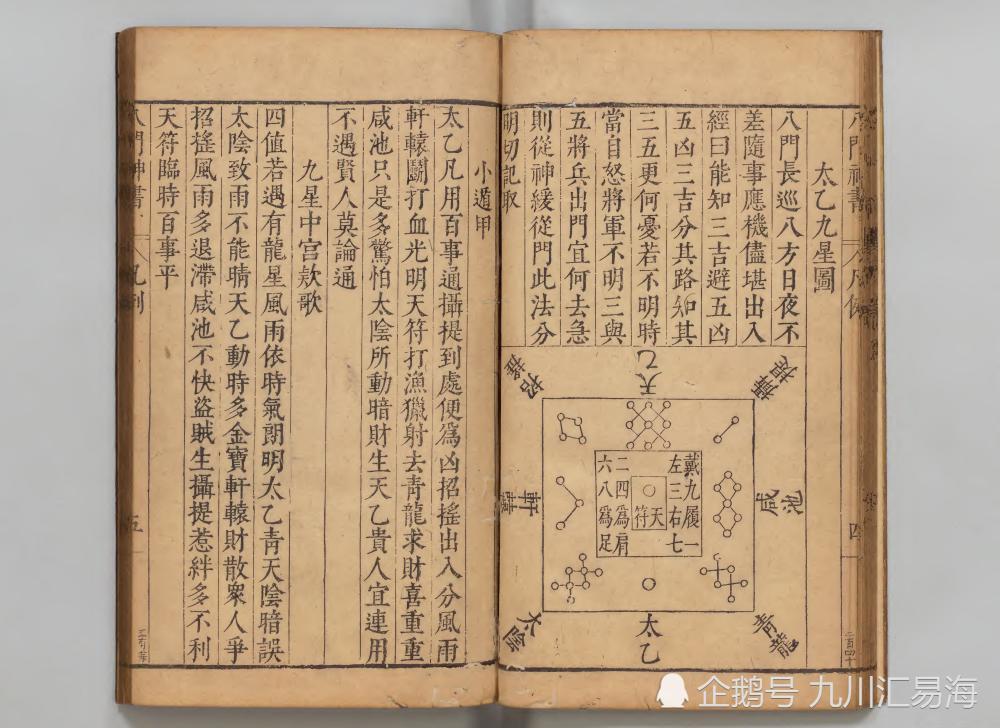 太乙九星圖
八門長巡八方日夜不
差隨事應機儘堪出入
經曰能知三吉避五凶
五凶三吉分其路知其
三五更何憂若不明時
當自怒將軍不明三與
五將兵出門宜何去急
則從神緩從門此法分
明切記取
天乙
招搖
攝提
軒轅
咸池
太陰
青龍
太乙
戴九履一
左三右七
二四為肩
六八為足
天符
四
小遁甲
太乙凡用百事通攝提到處便為凶招搖出入分風雨
軒轅鬭打血光明天符打漁獵射去青龍求財喜重重
咸池只是多驚怕太陰所動暗財生天乙貴人宜連用
不遇賢人莫論通
九星中宮欵歌
四值若遇有龍星風雨依時氣朗明太乙青天陰暗誤
太陰致雨不能晴天乙動時多金寶軒轅財散衆人爭
招搖風雨多退滯咸池不快盜賊生攝提惹絆多不利
天符臨時百事平
八門神書
凡例
五
企鹅号 九川汇易海